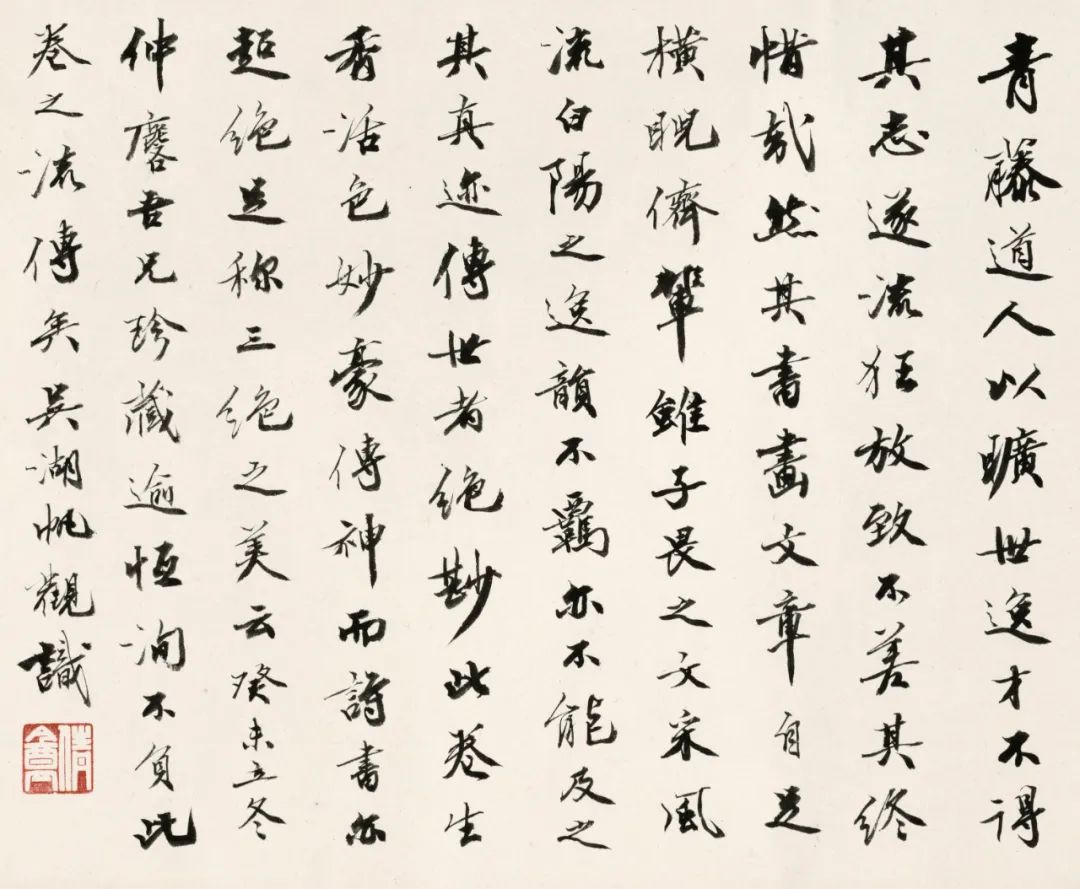 青藤道人以曠世逸才不得
其志遂流狂放致不善其終
惜哉然其書畫文章自足
橫睨儕輩雖子畏之文采風
流白陽之逸韻不羈亦不能及之
其真迹傳世者絶尟此卷生
香活色妙豪傳神而詩書亦
超絶足称三絶之美云癸未立冬
仲麐吾兄珍藏逾恒洵不負此
卷之流傳矣吳湖帆觀識
倩盦